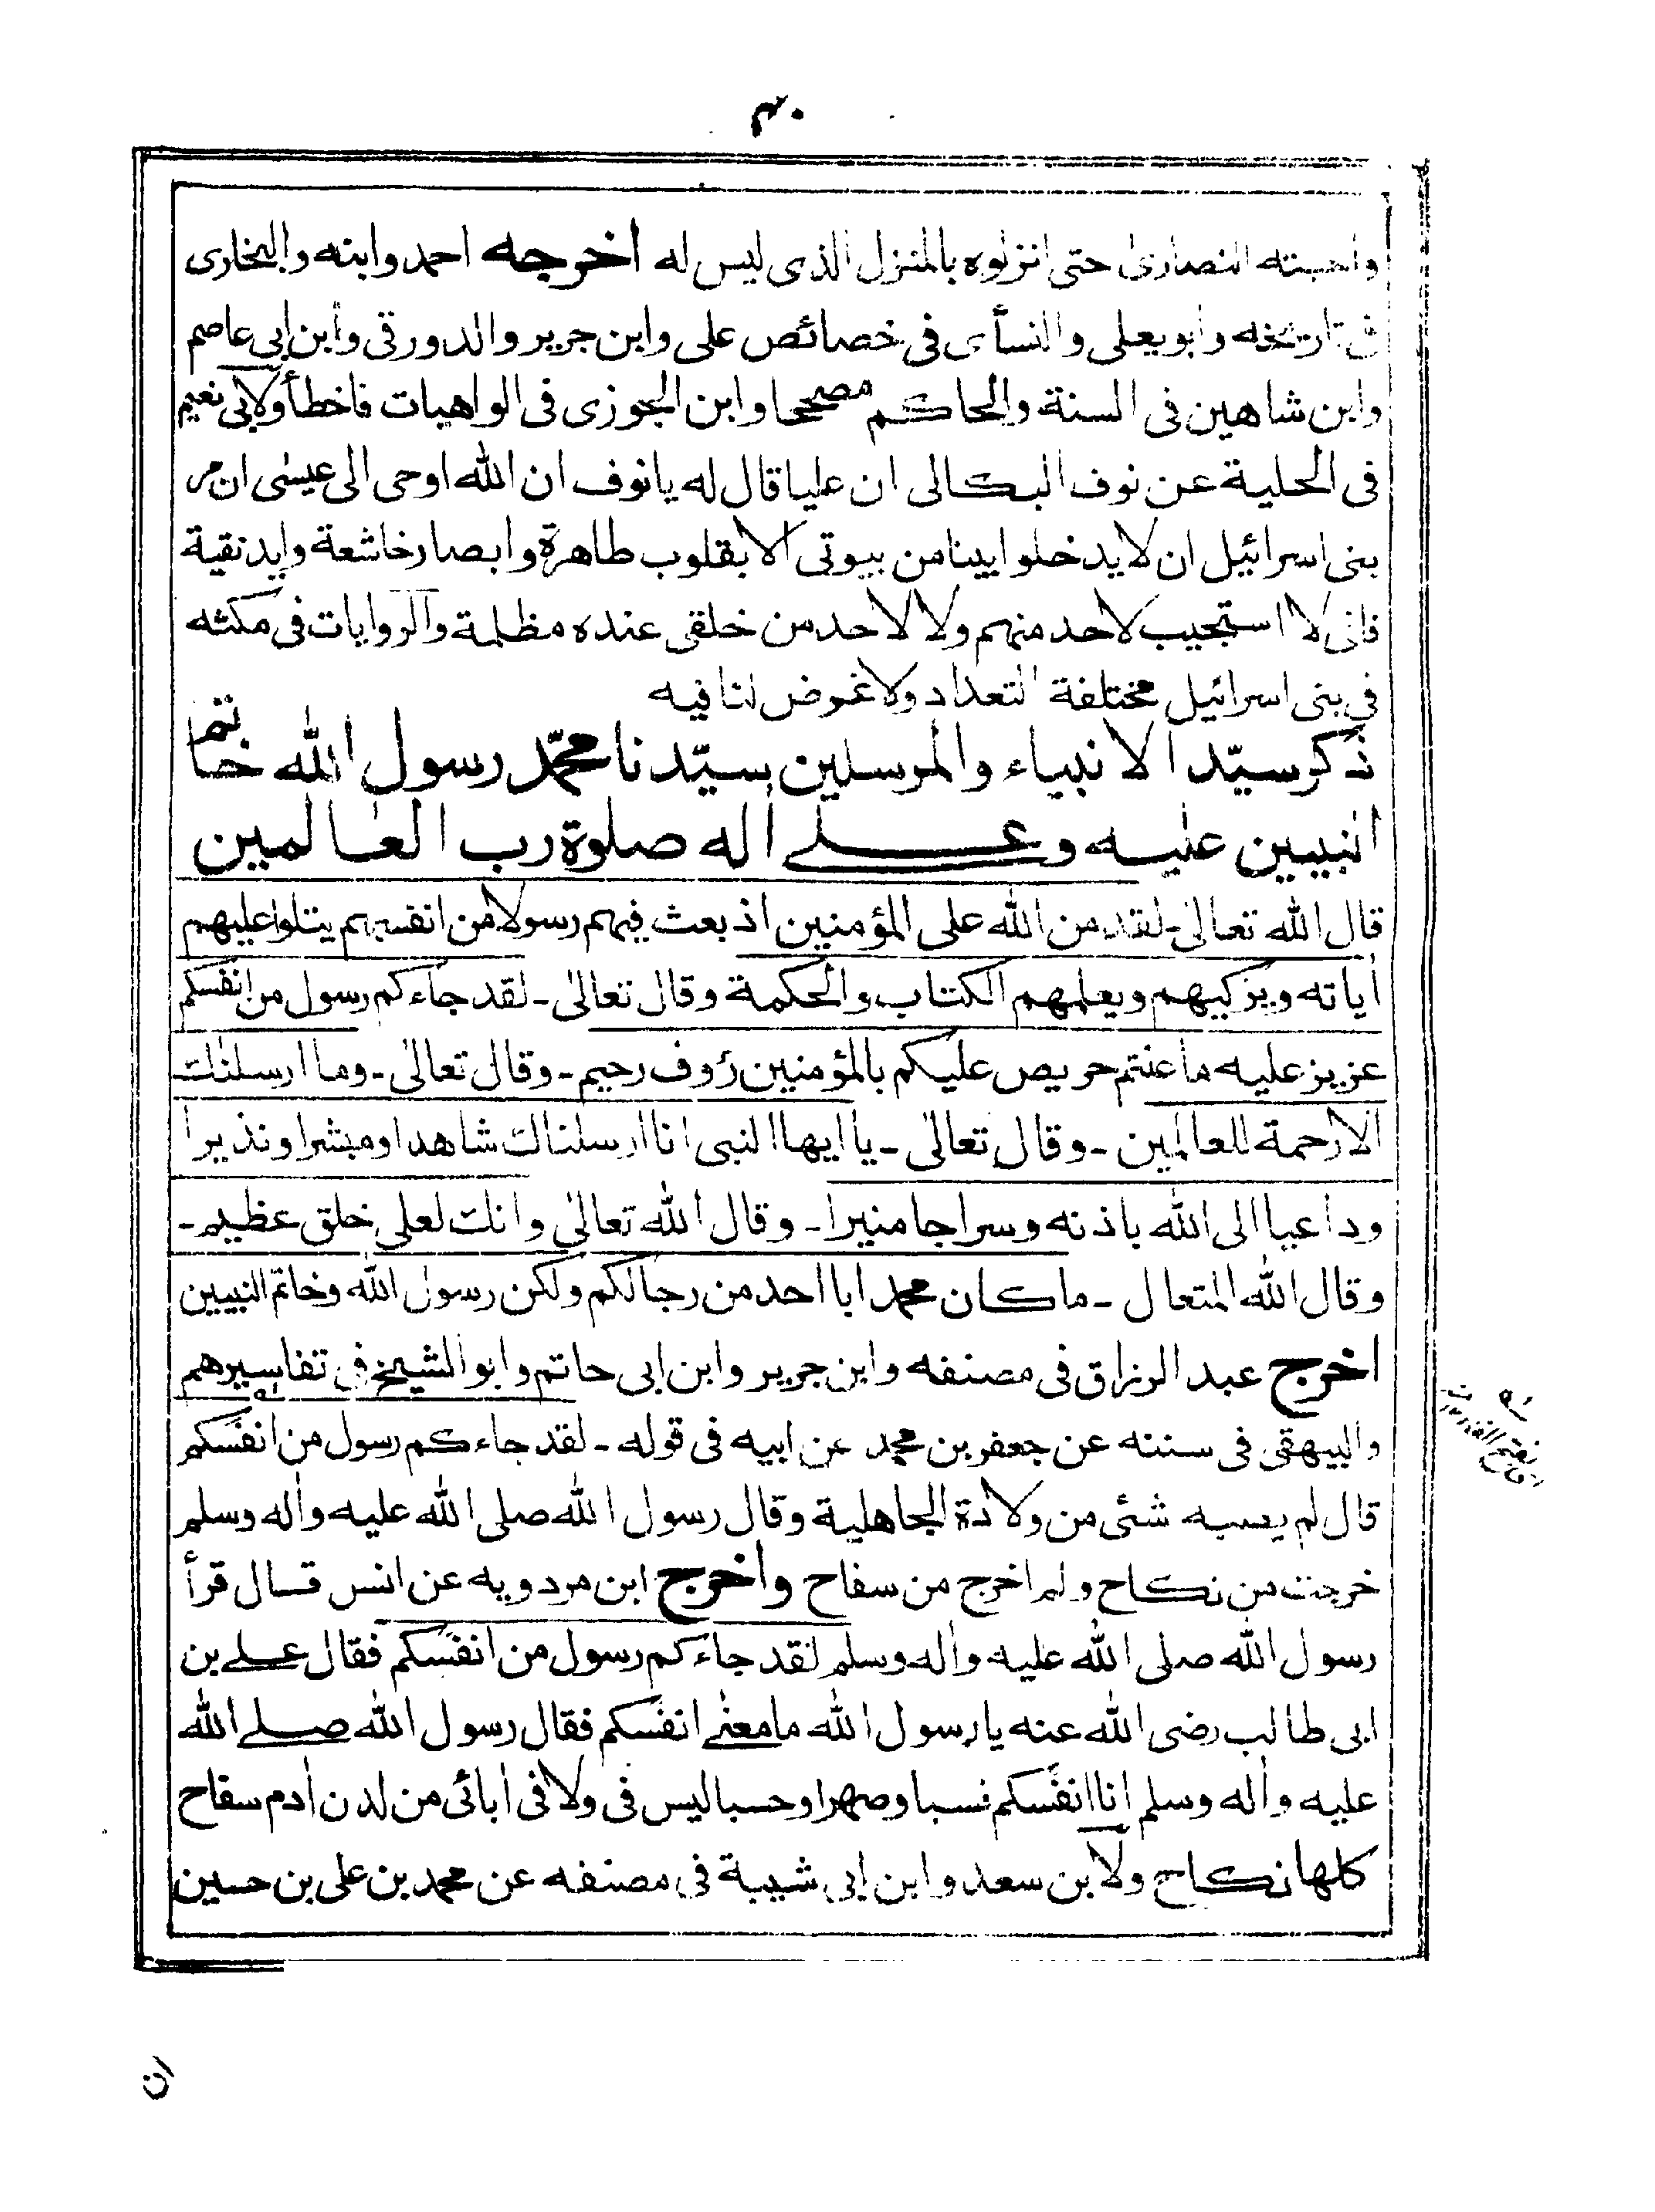 ٣٠
واحبته النصارىٰ حتى انزلوه بالمنزل الذى ليس له اخرجه احمد وابنه والبخارى
فى تاريخه وابويعلى والنسأى فى خصائص على وابن جرير والدورقى وابن ابى عاصم
وابن شاهين فى السنة والحاكم مصححا وابن الجوزى فى الواهيات فاخطأ ولابى نعيم
فى الحلية عن نوف البكالى ان عليا قال له يا نوف ان الله اوحى الى عيسٰى ان مر
بنى اسرائيل ان لا يدخلوا بيتا من بيوتى الا بقلوب طاهرة وابصار خاشعة وايد نقية
فانى لا استجيب لاحد منهم ولا لاحد من خلقى عنده مظلمة والروايات فى مكثه
فى بنى اسرائيل مختلفة التعداد ولا غرض لنا فيه
ذكر سيّد الانبياء والمرسلين سيّدنا محمّد رسول الله خاتم
النبيين عليه وعلے اٰله صلوة رب العالمين
قال الله تعالىٰ ـ لقد من الله على المؤمنين اذ بعث فيهم رسولا من انفسهم يتلوا عليهم
اٰياته ويزكيهم ويعلمهم الكتاب والحكمة وقال تعالىٰ ـ لقد جاءكم رسول من انفسكم
عزيز عليه ما عنتم حريص عليكم بالمؤمنين رؤوف رحيم ـ وقال تعالىٰ ـ وما ارسلنٰك
الا رحمة للعالمين ـ وقال تعالىٰ ـ يا ايها النبى انا ارسلناك شاهدا ومبشرا ونذيرا
وداعيا الى الله باذنه وسراجا منيرا ـ وقال الله تعالىٰ وانك لعلى خلق عظيم ـ
وقال الله المتعال ـ ما كان محمد ابا احد من رجالكم ولكن رسول الله وخاتم النبيين
اخرج عبد الرزاق فى مصنفه وابن جرير وابن ابى حاتم وابو الشيخ فى تفاسيرهم
والبيهقى فى سننه عن جعفر بن محمد عن ابيه فى قوله ـ لقد جاءكم رسول من انفسكم
قال لم يصبه شئى من ولادة الجاهلية وقال رسول الله صلى الله عليه واٰله وسلم
خرجت من نكاح ولم اخرج من سفاح واخرج ابن مردويه عن انس قال قرأ
رسول الله صلى الله عليه واٰله وسلم لقد جاءكم رسول من انفَسكم فقال علے بن
ابى طالب رضى الله عنه يا رسول الله ما معنٰے انفَسكم فقال رسول الله صلے الله
عليه واٰله وسلم انا انفَسكم نسبا وصهرا وحسبا ليس فى ولا فى اٰبائى من لدن اٰدم سفاح
كلها نكاح ولابن سعد وابن ابى شيبة فى مصنفه عن محمد بن على بن حسين
ان